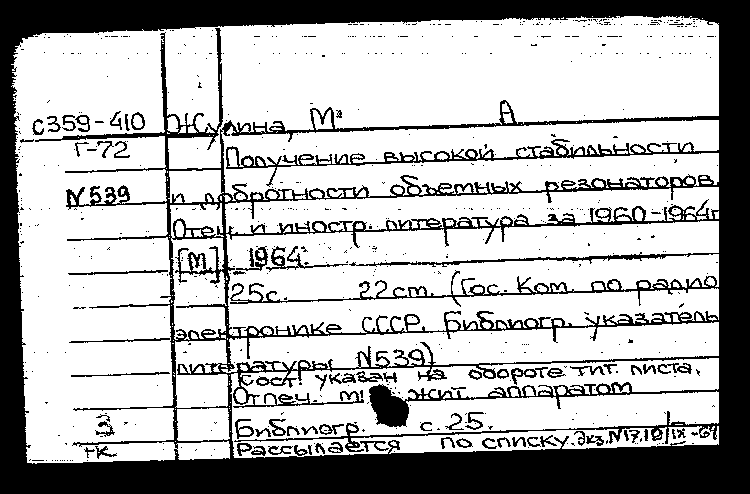 С359-410 Жулина, М. А
Г-72 Получение высокой стабильности
N539 и добротности объемных резонаторов.
Отеч. и иностр. литература за 1960-1964г
[М] 1964.
25с. 22cm. (Гос. Ком. по радио
электронике СССР. Библиогр. указатель
литературы N539)
Сост. указан на обороте тит. листа.
Отпеч. аппаратом
Библиогр. с. 25.
3
тк Рассылается по списку. Экз. N17. 10/IX-64